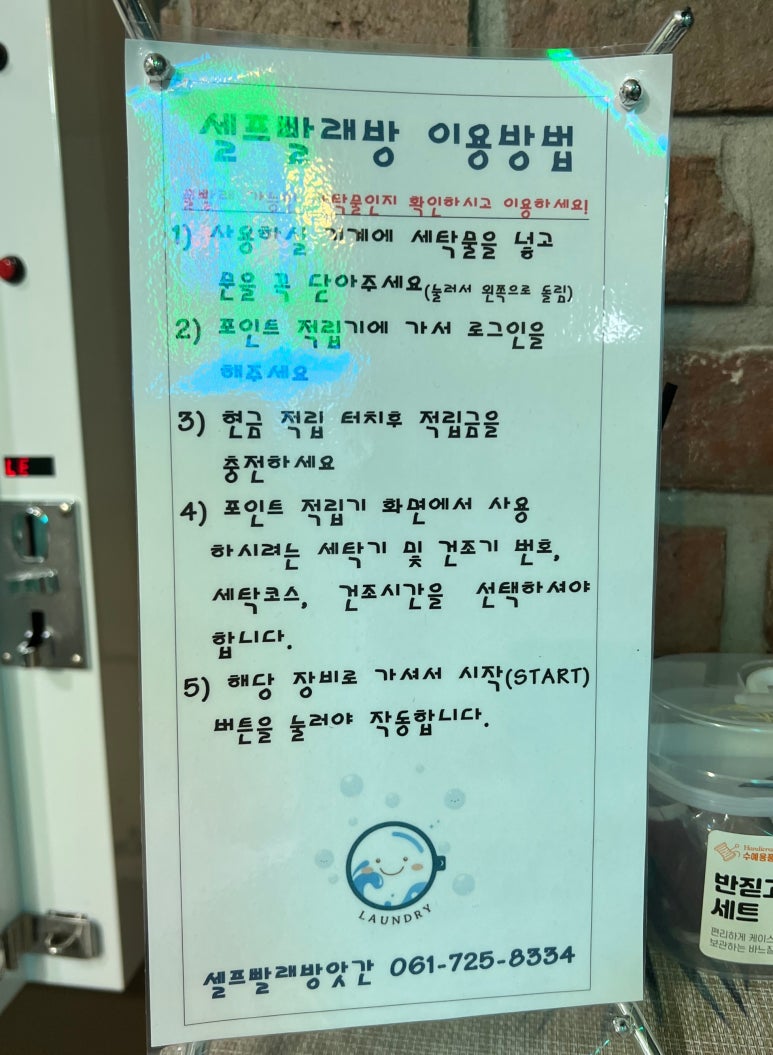 셀프빨래방 이용방법
물빨래 가능한 세탁물인지 확인하시고 이용하세요!
1) 사용하실 기계에 세탁물을 넣고
문을 꼭 닫아주세요(눌러서 왼쪽으로 돌림)
2) 포인트 적립기에 가서 로그인을
해주세요
3) 현금 적립 터치후 적립금을
충전하세요
4) 포인트 적립기 화면에서 사용
하시려는 세탁기 및 건조기 번호,
세탁코스, 건조시간을 선택하셔야
합니다.
5) 해당 장비로 가셔서 시작(START)
버튼을 눌러야 작동합니다.
LAUNDRY
셀프빨래방앗간 061-725-8334
LE
수예용품
반짇고
세트
편리하게 케이스
보관하는 바느질